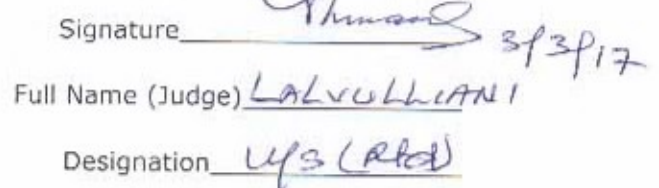 Signature 3/3/17
Full Name (Judge) LALVULLIANI
Designation U/S